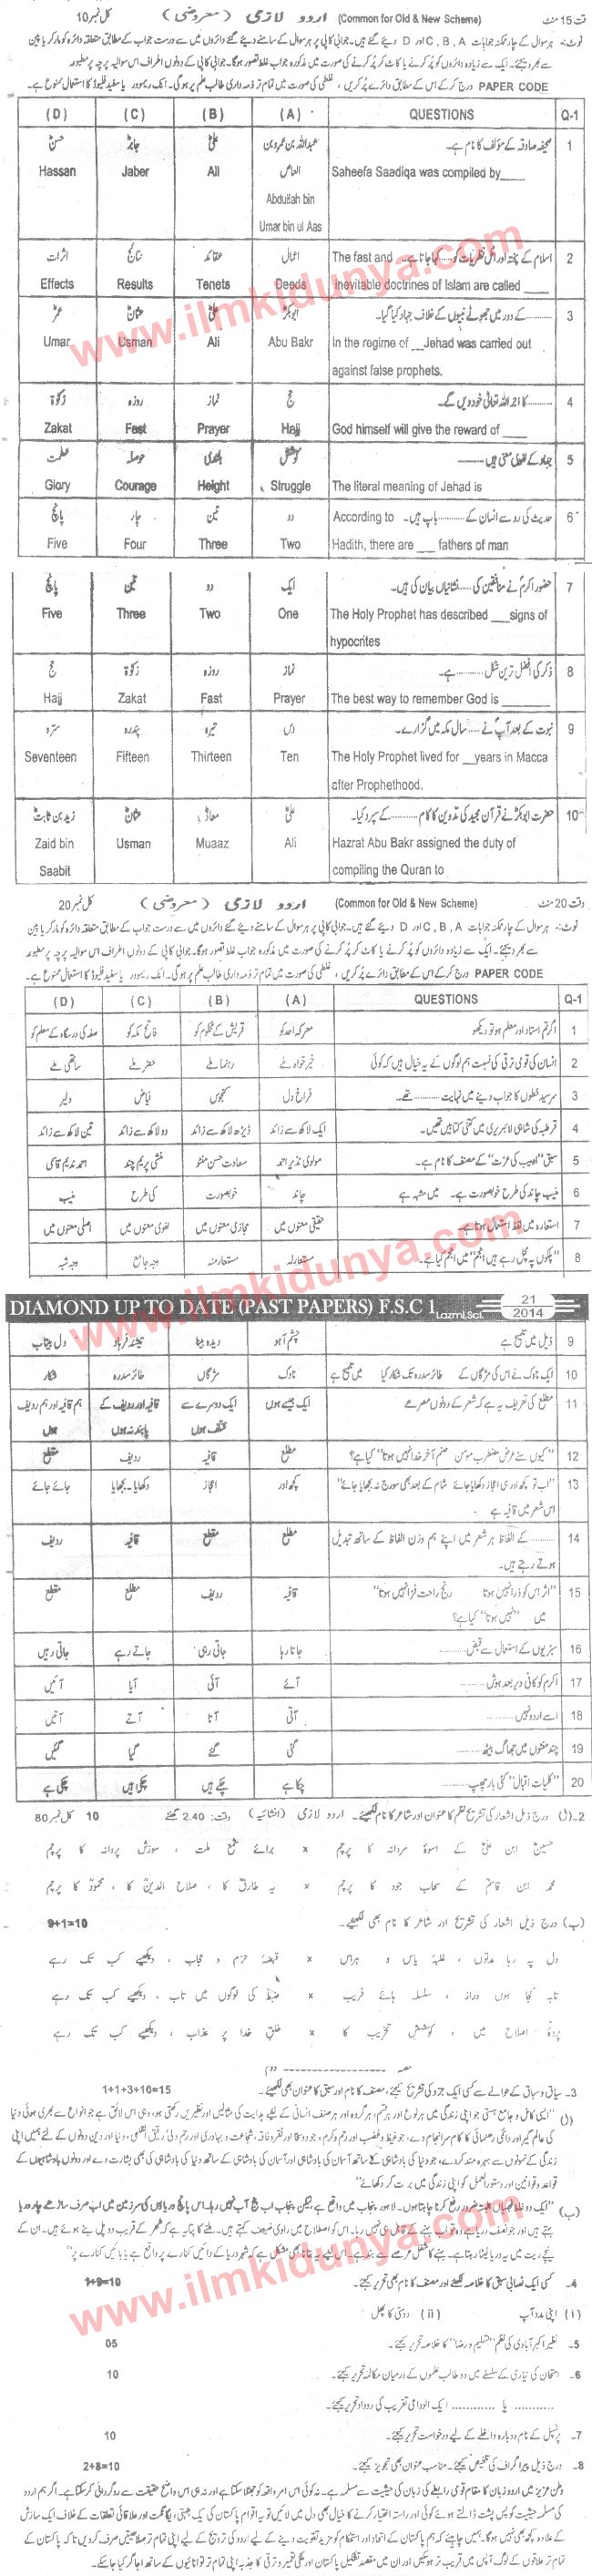 قت 15 منٹ اردو لازمی (معروضی) (Common for Old & New Scheme) کل نمبر 10
نوٹ:- ہر سوال کے چار ممکنہ جوابات A ، B ، C اور D دیئے گئے ہیں۔ جوابی کاپی پر ہر سوال کے سامنے دیئے گئے دائروں میں سے درست جواب کے مطابق متعلقہ دائرہ کو مارکر یا پین
سے بھر دیجئے۔ ایک سے زیادہ دائروں کو پُر کرنے یا کاٹ کر پُر کرنے کی صورت میں مذکورہ جواب غلط تصور ہوگا۔ جوابی کاپی کے دونوں اطراف اس سوالیہ پرچہ پر مطبوعہ
PAPER CODE درج کر کے اس کے مطابق دائرے پُر کریں، غلطی کی صورت میں تمام تر ذمہ داری طالب علم پر ہوگی۔ انک ریموور یا سفید فلیوڈ کا استعمال ممنوع ہے۔
(D) (C) (B) (A) QUESTIONS Q-1
حسنؓ جابرؓ علیؓ عبداللہ بن عمرو بن العاص صحیفہ صادقہ کے مؤلف کا نام ہے۔ 1
Hassan Jaber Ali Abdullah bin Umar bin ul Aas Saheefa Saadiqa was compiled by____
اثرات نتائج عقائد اعمال اسلام کے پختہ اور اٹل نظریات کو ....... کہا جاتا ہے۔ 2
Effects Results Tenets Deeds The fast and inevitable doctrines of Islam are called ____
عمرؓ عثمانؓ علیؓ ابوبکرؓ ......... کے دور میں جھوٹے نبیوں کے خلاف جہاد کیا گیا۔ 3
Umar Usman Ali Abu Bakr In the regime of __Jehad was carried out against false prophets.
زکوٰۃ روزہ نماز حج ......... کا اجر اللہ تعالیٰ خود دیں گے۔ 4
Zakat Fast Prayer Hajj God himself will give the reward of ____
عظمت حوصلہ بلندی کوشش جہاد کے لفظی معنی ہیں ......... 5
Glory Courage Height Struggle The literal meaning of Jehad is
پانچ چار تین دو حدیث کی رو سے انسان کے ......... باپ ہیں۔ 6
Five Four Three Two According to Hadith, there are ___ fathers of man
پانچ تین دو ایک حضور اکرمؐ نے منافقین کی ...... نشانیاں بیان کی ہیں۔ 7
Five Three Two One The Holy Prophet has described ___signs of hypocrites
حج زکوٰۃ روزہ نماز ذکر کی افضل ترین شکل ......... ہے۔ 8
Hajj Zakat Fast Prayer The best way to remember God is _______
سترہ پندرہ تیرہ دس نبوت کے بعد آپؐ نے ...... سال مکہ میں گزارے۔ 9
Seventeen Fifteen Thirteen Ten The Holy Prophet lived for __years in Macca after Prophethood.
زید بن ثابتؓ عثمانؓ معاذؓ علیؓ حضرت ابوبکرؓ نے قرآن مجید کی تدوین کا کام ......... کے سپرد کیا۔ 10
Zaid bin Saabit Usman Muaaz Ali Hazrat Abu Bakr assigned the duty of compiling the Quran to
وقت 20 منٹ اردو لازمی (معروضی) (Common for Old & New Scheme) کل نمبر 20
نوٹ:- ہر سوال کے چار ممکنہ جوابات A ، B ، C اور D دیئے گئے ہیں۔ جوابی کاپی پر ہر سوال کے سامنے دیئے گئے دائروں میں سے درست جواب کے مطابق متعلقہ دائرہ کو مارکر یا پین
سے بھر دیجئے۔ ایک سے زیادہ دائروں کو پُر کرنے یا کاٹ کر پُر کرنے کی صورت میں مذکورہ جواب غلط تصور ہوگا۔ جوابی کاپی کے دونوں اطراف اس سوالیہ پرچہ پر مطبوعہ
PAPER CODE درج کر کے اس کے مطابق دائرے پُر کریں، غلطی کی صورت میں تمام تر ذمہ داری طالب علم پر ہوگی۔ انک ریموور یا سفید فلیوڈ کا استعمال ممنوع ہے۔
(D) (C) (B) (A) QUESTIONS Q-1
صفہ کی درسگاہ کے معلم کو فاتح مکہ کو قریش کے محکوم کو معرکہ احد کو اگر تم استاد اور معلم ہو تو دیکھو 1
ساتھی ملے خضر ملے رہنما ملے خیر خواہ ملے انسان کی قومی ترقی کی نسبت ہم لوگوں کے یہ خیال ہیں کہ کوئی 2
دلیر فیاض کنجوس فراخ دل سرسید خطوں کا جواب دینے میں نہایت ......... تھے۔ 3
تین لاکھ سے زائد دو لاکھ سے زائد ڈیڑھ لاکھ سے زائد ایک لاکھ سے زائد قرطبہ کی شاہی لائبریری میں کتنی کتابیں تھیں۔ 4
احمد ندیم قاسمی منشی پریم چند سعادت حسن منٹو مولوی نذیر احمد سبق "ادیب کی عزت" کے مصنف کا نام ہے۔ 5
منیب کی طرح خوبصورت چاند منیب چاند کی طرح خوبصورت ہے۔ میں مشبہ ہے 6
اصلی معنوں میں لغوی معنوں میں مجازی معنوں میں حقیقی معنوں میں استعارہ میں لفظ استعمال ہوتا ہے۔ 7
وجہ شبہ وجہ جامع مستعار منہ مستعار لہ "پلکوں پہ مچل رہے ہیں انجم" میں انجم کیا ہے۔ 8
DIAMOND UP TO DATE (PAST PAPERS) F.S.C 1 Lazmi,Sci. 21 2014
دل بیتاب تیشہ فرہاد دیدہ بینا چشم آہو ذیل میں تلمیح ہے 9
شکار طائر سدرہ مژگاں ناوک ایک ناوک نے اس کی مژگاں کے طائر سدرہ تک شکار کیا میں تلمیح ہے 10
ہم قافیہ اور ہم ردیف ہوں قافیہ اور ردیف کے پابند نہ ہوں ایک دوسرے سے مختلف ہوں ایک جیسے ہوں مطلع کی تعریف یہ ہے کہ شعر کے دونوں مصرعے 11
مقطع ردیف قافیہ مطلع "کیوں سنے عرض مضطرب مومن صنم آخر خدا نہیں ہوتا" کیا ہے؟ 12
جائے جائے دکھایا۔ بجھایا اعجاز کچھ اور "اب تو کچھ اور ہی اعجاز دکھایا جائے شام کے بعد بھی سورج نہ بجھایا جائے" اس شعر میں قافیہ ہے 13
ردیف قافیہ مقطع مطلع ......... کے الفاظ ہر شعر میں اپنے ہم وزن الفاظ کے ساتھ تبدیل ہوتے رہتے ہیں۔ 14
مقطع مطلع ردیف قافیہ "اثر اس کو ذرا نہیں ہوتا رنج راحت فزا نہیں ہوتا" میں "نہیں ہوتا" کیا ہے؟ 15
جاتی رہیں جاتے رہے جاتی رہی جاتا رہا سبزیوں کے استعمال سے قبض......... 16
آئیں آیا آئی آئے اکرم کو کافی دیر بعد ہوش......... 17
آتیں آتے آتا آتی اسے اردو نہیں......... 18
گئیں گیا گئے گئی چند منٹوں میں جھاگ بیٹھ......... 19
چکی ہے چکی ہیں چکے ہیں چکا ہے "کلیات اقبال" کئی بار چھپ......... 20
2۔(ا) درج ذیل اشعار کی تشریح نظم کا عنوان اور شاعر کا نام لکھیئے۔ اردو لازمی (انشائیہ) وقت: 2.40 گھنٹے 10 کل نمبر 80
حسینؓ ابن علیؓ کے اسوۂ مردانہ کا پرچم x برائے شمع ملت ، سوزش پروانہ کا پرچم
محمد بن قاسم کے سحاب جود کا پرچم x یہ طارق کا ، صلاح الدینؒ کا ، محمودؒ کا پرچم
(ب) درج ذیل اشعار کی تشریح اور شاعر کا نام بھی لکھیئے۔ 9+1=10
دل پہ رہا مدتوں ، غلبۂ یاس و ہراس x قبضۂ حزم و حجاب ، دیکھیے کب تک رہے
تابہ کجا ہوں دراز ، سلسلہ ہائے فریب x ضبط کی لوگوں میں تاب ، دیکھیے کب تک رہے
پردۂ اصلاح میں ، کوشش تخریب کا x خلق خدا پر عذاب ، دیکھیے کب تک رہے
حصہ دوم
3۔ سیاق و سباق کے حوالے سے کسی ایک جزو کی تشریح کیجئے، مصنف کا نام اور سبق کا عنوان بھی لکھیئے۔ 1+1+3+10=15
(ا) "ایسی کامل و جامع ہستی جو اپنی زندگی میں ہر نوع اور ہر قسم، ہر گروہ اور ہر صنف انسانی کے لیے ہدایت کی مثالیں اور نظیریں رکھتی ہو، وہی اس لائق ہے جو انواع سے بھری ہوئی دنیا
کی عالم گیر اور دائمی رہنمائی کا کام سرانجام دے، جو غیظ و غضب اور رحم و کرم، جود و سخا اور فقر و فاقہ، شجاعت و بہادری اور رحم دلی و رقیق القلبی، دنیا اور دین دونوں کے لئے ہمیں اپنی
زندگی کے نمونوں سے بہرہ مند کر دے، جو دنیا کی بادشاہی کے ساتھ آسمان کی بادشاہی اور آسمان کی بادشاہی کے ساتھ دنیا کی بادشاہی کی بھی بشارت دے اور دونوں بادشاہیوں کے
قواعد و قوانین اور دستور العمل کو اپنی زندگی میں برت کر دکھائے"
(ب) "ایک دو غلط فہمیاں البتہ ضرور رفع کرنا چاہتا ہوں۔ لاہور پنجاب میں واقع ہے لیکن پنجاب اب پنج آب نہیں رہا۔ اس پانچ دریاؤں کی سرزمین میں اب صرف ساڑھے چار دریا
بہتے ہیں اور جو نصف دریا ہے وہ تو اب بہنے کے قابل ہی نہیں رہا۔ اس کو اصطلاح میں راوی ضعیف کہتے ہیں۔ ملنے کا پتا یہ ہے کہ شہر کے قریب دو پل بنے ہوئے ہیں۔ ان کے
نیچے ریت میں یہ دریا لیٹا رہتا ہے۔ بہنے کا شغل عرصے سے بند ہے۔ اس لیے یہ بتانا بھی مشکل ہے کہ شہر دریا کے دائیں کنارے پر واقع ہے یا بائیں کنارے پر"
4۔ کسی ایک نصابی سبق کا خلاصہ لکھئے اور مصنف کا نام بھی تحریر کیجئے۔ 1+9=10
(i) اپنی مدد آپ (ii) دوستی کا پھل
5۔ نظیر اکبر آبادی کی نظم "تسلیم و رضا" کا خلاصہ تحریر کیجئے۔ 05
6۔ امتحان کی تیاری کے سلسلے میں دو طالب علموں کے درمیان مکالمہ تحریر کیجئے۔ 10
یا ............ ایک الوداعی تقریب کی روداد تحریر کیجئے۔
7۔ پرنسپل کے نام دوبارہ داخلے کے لیے درخواست تحریر کیجئے۔ 10
8۔ درج ذیل پیراگراف کی تلخیص کیجئے۔ مناسب عنوان بھی تجویز کیجئے۔ 2+8=10
وطن عزیز میں اردو زبان کا مقام قومی رابطے کی زبان کی حیثیت سے مسلمہ ہے۔ نہ کوئی اس امر واقعہ کو جھٹلا سکتا ہے اور نہ ہی اس واضح حقیقت سے روگردانی کر سکتا ہے۔ اگر ہم اردو
کی مسلمہ حیثیت کو پس پشت ڈالتے ہوئے کوئی اور راستہ اختیار کرنے کا خیال بھی دل میں لائیں تو یہ اقوام پاکستان کی یک جہتی، یگانگت اور علاقائی تعلقات کے خلاف ایک سازش
کے علاوہ کچھ بھی نہیں ہوگا۔ ہمیں چاہیئے کہ ہم پاکستان کے اتحاد اور استحکام کو مزید تقویت دینے کے لیے اردو کی ترویج کے لیے اپنی تمام تر صلاحیتیں صرف کر دیں تا کہ پاکستان کے
تمام علاقوں کے لوگ آپس میں قریب تر ہو سکیں اور ان میں مقصد تشکیل پاکستان اور ملکی تعمیر و ترقی کا جذبہ اپنی تمام تر توانائیوں کے ساتھ اجاگر کیا جا سکے۔
www.ilmkidunya.com
www.ilmkidunya.com
www.ilmkidunya.com